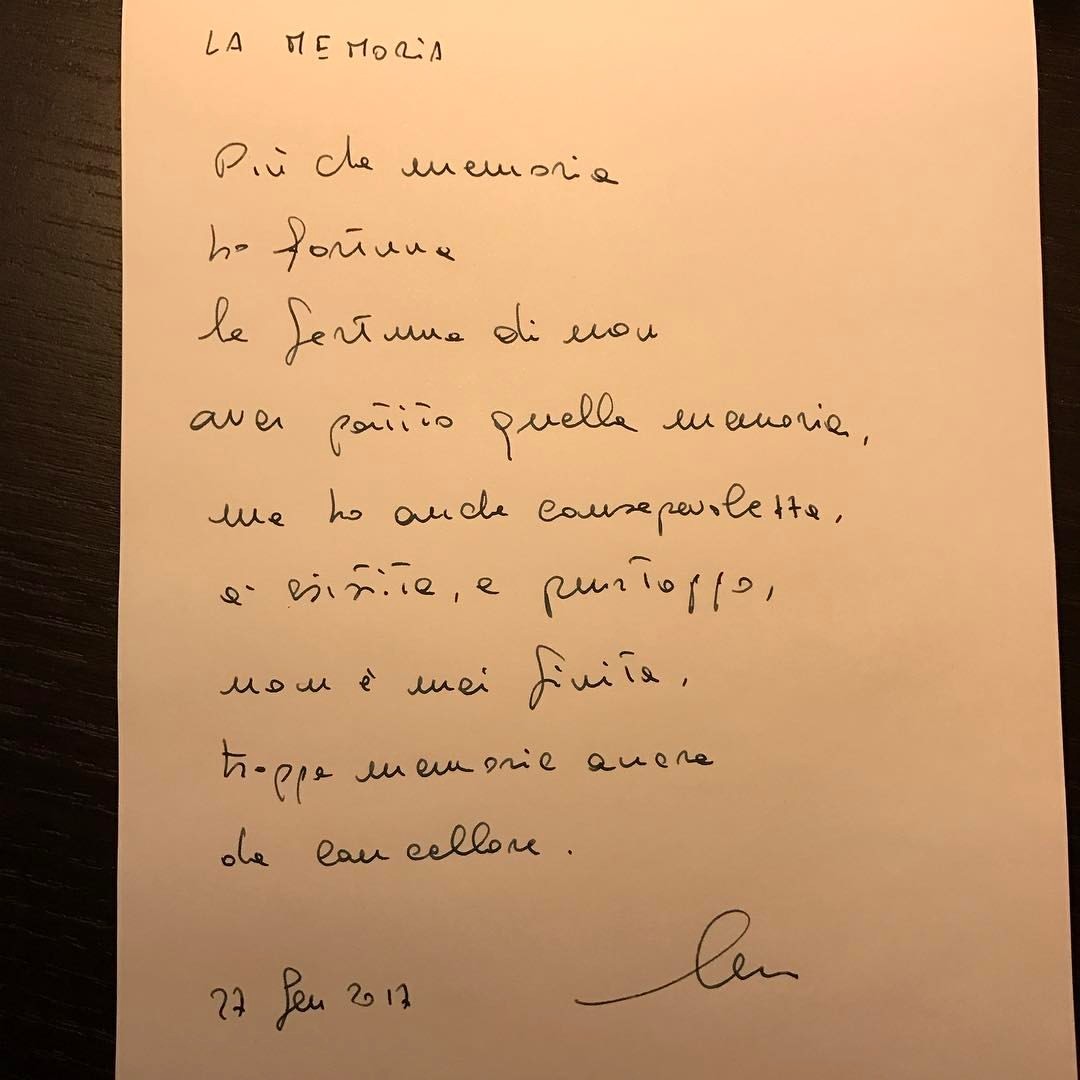 LA MEMORIA
Più che memoria
ho fortuna
la fortuna di non
aver patito quella memoria,
ma ho anche consapevolezza,
è esistita, e purtoppo,
non è mai finita,
troppa memoria ancora
da cancellare.
27 Gen 2017